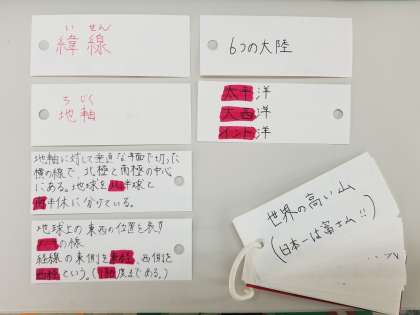 いせん
緯線
6つの大陸
ちじく
地軸
太平洋
大西洋
インド洋
地軸に対して垂直な平面で切った
横の線で、北極と南極の中心
にある。地球を北半球と
南半休に分けている。
地球上の東西の位置を表す
の線
経線の東側を東経、西側を
西経という。(180度まである。)
世界の高い山
(日本一は富士山!!)